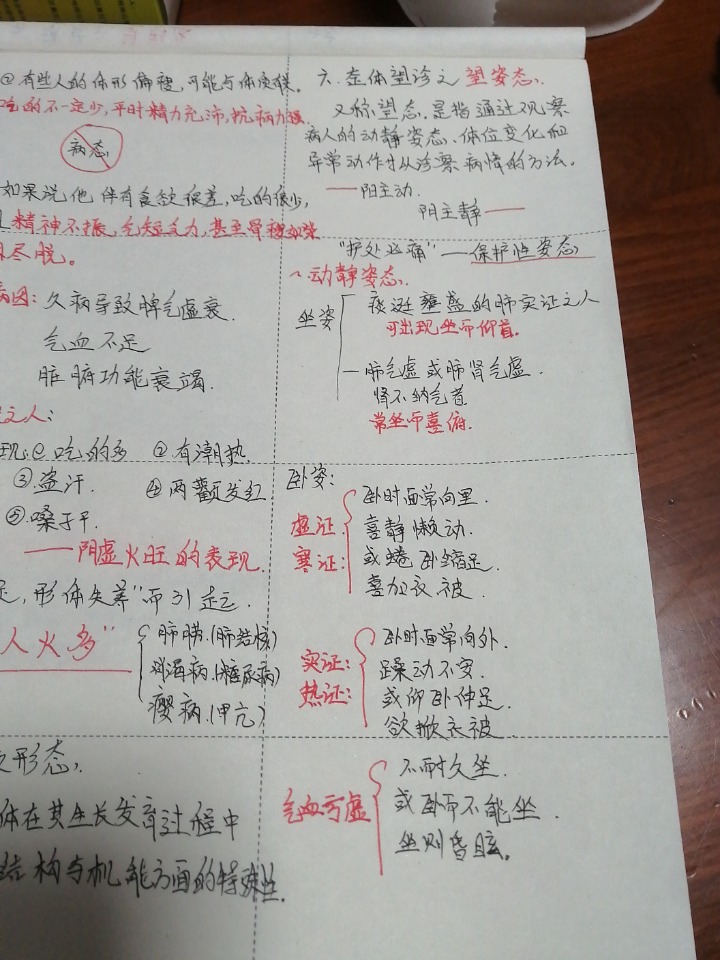 ②有些人的体形偏瘦,可能与体质殊。
吃的不一定少,平时精力充沛,抗病力强.
病态
如果说他伴有食欲很差,吃的很少,
精神不振,气短乏力,甚至骨瘦如柴
尽脱。
病因:久病导致脾气虚衰.
气血不足
脏腑功能衰竭.
之人:
现:①吃的多 ②有潮热.
③盗汗. ④两颧发红
⑤嗓子干.
——阴虚火旺的表现.
足,形体失养"而引起.
人火多"
肺痨.(肺结核)
消渴病.(糖尿病)
瘿病.(甲亢)
形态.
体在其生长发育过程中
结构与机能方面的特殊性.
六.整体望诊之望姿态.
又称望态.是指通过观察
病人的动静姿态、体位变化和
异常动作以诊察病情的方法。
——阳主动.
阴主静——
"护处必痛"——保护性姿态
动静姿态.
坐姿
痰涎壅盛的肺实证之人
可出现坐而仰首。
肺气虚或肺肾气虚.
肾不纳气者
常坐而喜俯.
卧姿:
虚证:
寒证:
卧时面常向里.
喜静懒动.
或蜷卧缩足.
喜加衣被.
实证:
热证:
卧时面常向外.
躁动不安.
或仰卧伸足.
欲掀衣被
气血亏虚
不耐久坐.
或卧而不能坐.
坐则昏眩。